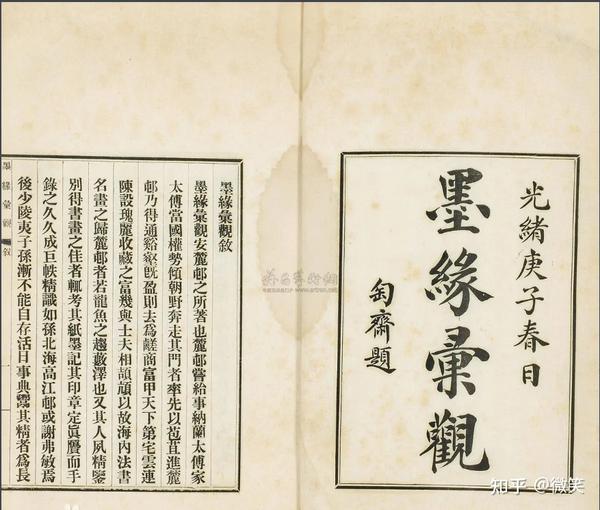 光緒庚子春日
墨緣彙觀
匋齋題
墨緣彙觀敘
墨緣彙觀安麓邨之所著也麓邨嘗給事納蘭太傅家
太傅當國權勢傾朝野奔走其門者率先以苞苴進麓
邨乃得通谿壑旣盈則去爲鹺商富甲天下第宅雲連
陳設瑰麗收藏之富幾與士夫相頡頏以故海內法書
名畫之歸麓邨者若龍魚之趨藪澤也又其人夙精鑒
別得書畫之佳者輒考其紙墨記其印章定眞贋而手
錄之久久成巨帙精識如孫北海高江邨或謝弗敏焉
後少陵夷子孫漸不能自存活日事典鬻其精者爲長
墨緣彙觀 敘
一
知乎 @微笑